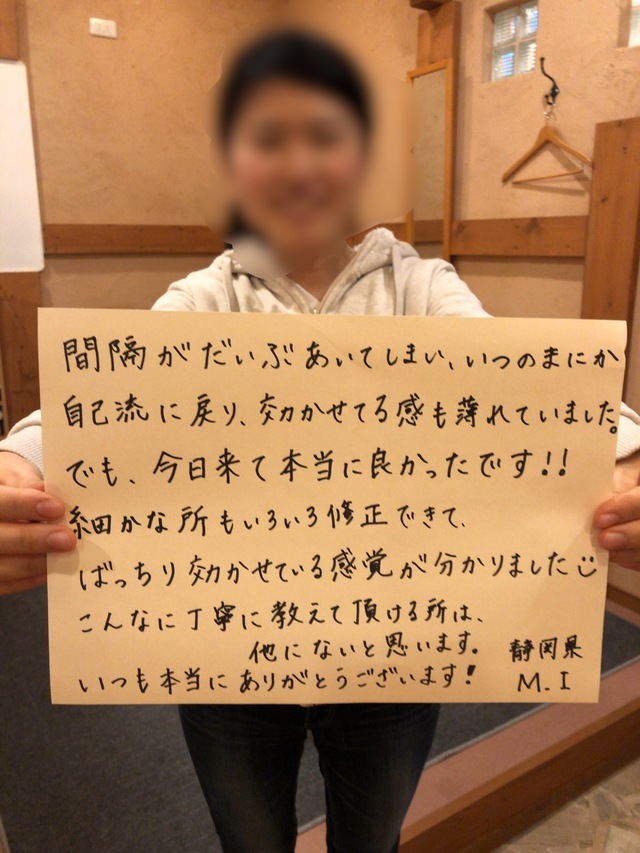 間隔がだいぶあいてしまい、いつのまにか
自己流に戻り、効かせてる感も薄れていました。
でも、今日来て本当に良かったです!!
細かな所もいろいろ修正できて、
ばっちり効かせている感覚が分かりました☺
こんなに丁寧に教えて頂ける所は、
他にないと思います。
いつも本当にありがとうございます!
静岡県
M.I